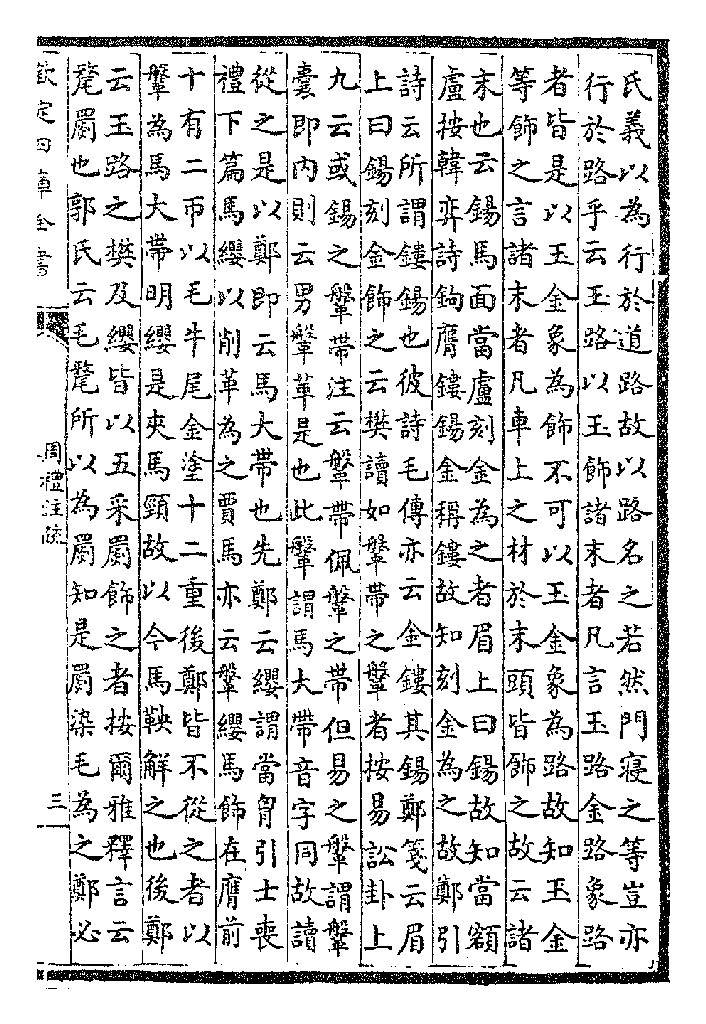 氏義以為行於道路故以路名之若然門寢之等豈亦
行於路乎云玉路以玉飾諸末者凡言玉路金路象路
者皆是以玉金象為飾不可以玉金象為路故知玉金
等飾之言諸末者凡車上之材於末頭皆飾之故云諸
末也云鍚馬面當盧刻金為之者眉上曰鍚故知當額
盧按韓奕詩鉤膺鏤鍚金稱鏤故知刻金為之故鄭引
詩云所謂鏤鍚也彼詩毛傳亦云金鏤其鍚鄭箋云眉
上曰鍚刻金飾之云樊讀如鞶帶之鞶者按易訟卦上
九云或錫之鞶帶注云鞶帶佩鞶之帶但易之鞶謂鞶
囊即内則云男鞶革是也此鞶謂馬大帶音字同故讀
從之是以鄭即云馬大帶也先鄭云纓謂當胷引士喪
禮下篇馬纓以削革為之賈馬亦云鞶纓馬飾在膺前
十有二帀以毛牛尾金塗十二重後鄭皆不從之者以
鞶為馬大帶明纓是夾馬頸故以今馬鞅解之也後鄭
云玉路之樊及纓皆以五采罽飾之者按爾雅釋言云
氂罽也郭氏云毛氂所以為罽知是罽染毛為之鄭必
欽定四庫全書
周禮注疏
三